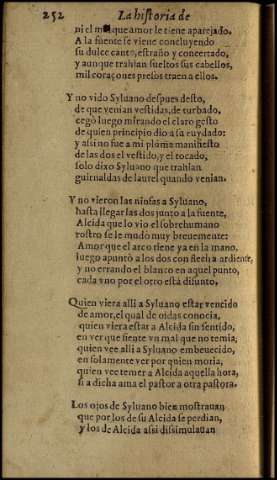 252 La historia de
ni el mal que amor le tiene aparejado.
A la fuente se viene concluyendo
su dulce canto, estraño y concertado,
y aunque trahian sueltos sus cabellos,
mil coraçones presos traen a ellos.
Y no vido Syluano despues desto,
de que venian vestidas, de turbado,
cegò luego mirando el claro gesto
de quien principio dio a su cuydado:
y assi no fue a mi pluma manifiesto
de las dos el vestido, y el tocado,
solo dixo Syluano que trahian
guirnaldas de laurel quando venian.
Y no vieron las ninfas a Syluano,
hasta llegar las dos junto a la fuente,
Alcida que lo vio el sobrehumano
rostro se le mudò muy breuemente:
Amor que el arco tiene ya en la mano,
luego apuntò a los dos con flecha ardiente,
y no errando el blanco en aquel punto,
cada vno por el otro està difunto.
Quien viera alli a Syluano estar vencido
de amor, el qual de oidas conocia,
quien viera estar a Alcida sin sentido,
en ver que siente vn mal que no temia,
quien vee alli a Syluano embeuecido,
en solamente ver por quien moria,
quien vee temer a Alcida aquella hora,
si a dicha ama el pastor a otra pastora.
Los ojos de Syluano bien mostrauan
que por los de su Alcida se perdian,
y los de Alcida assi dissimulauan